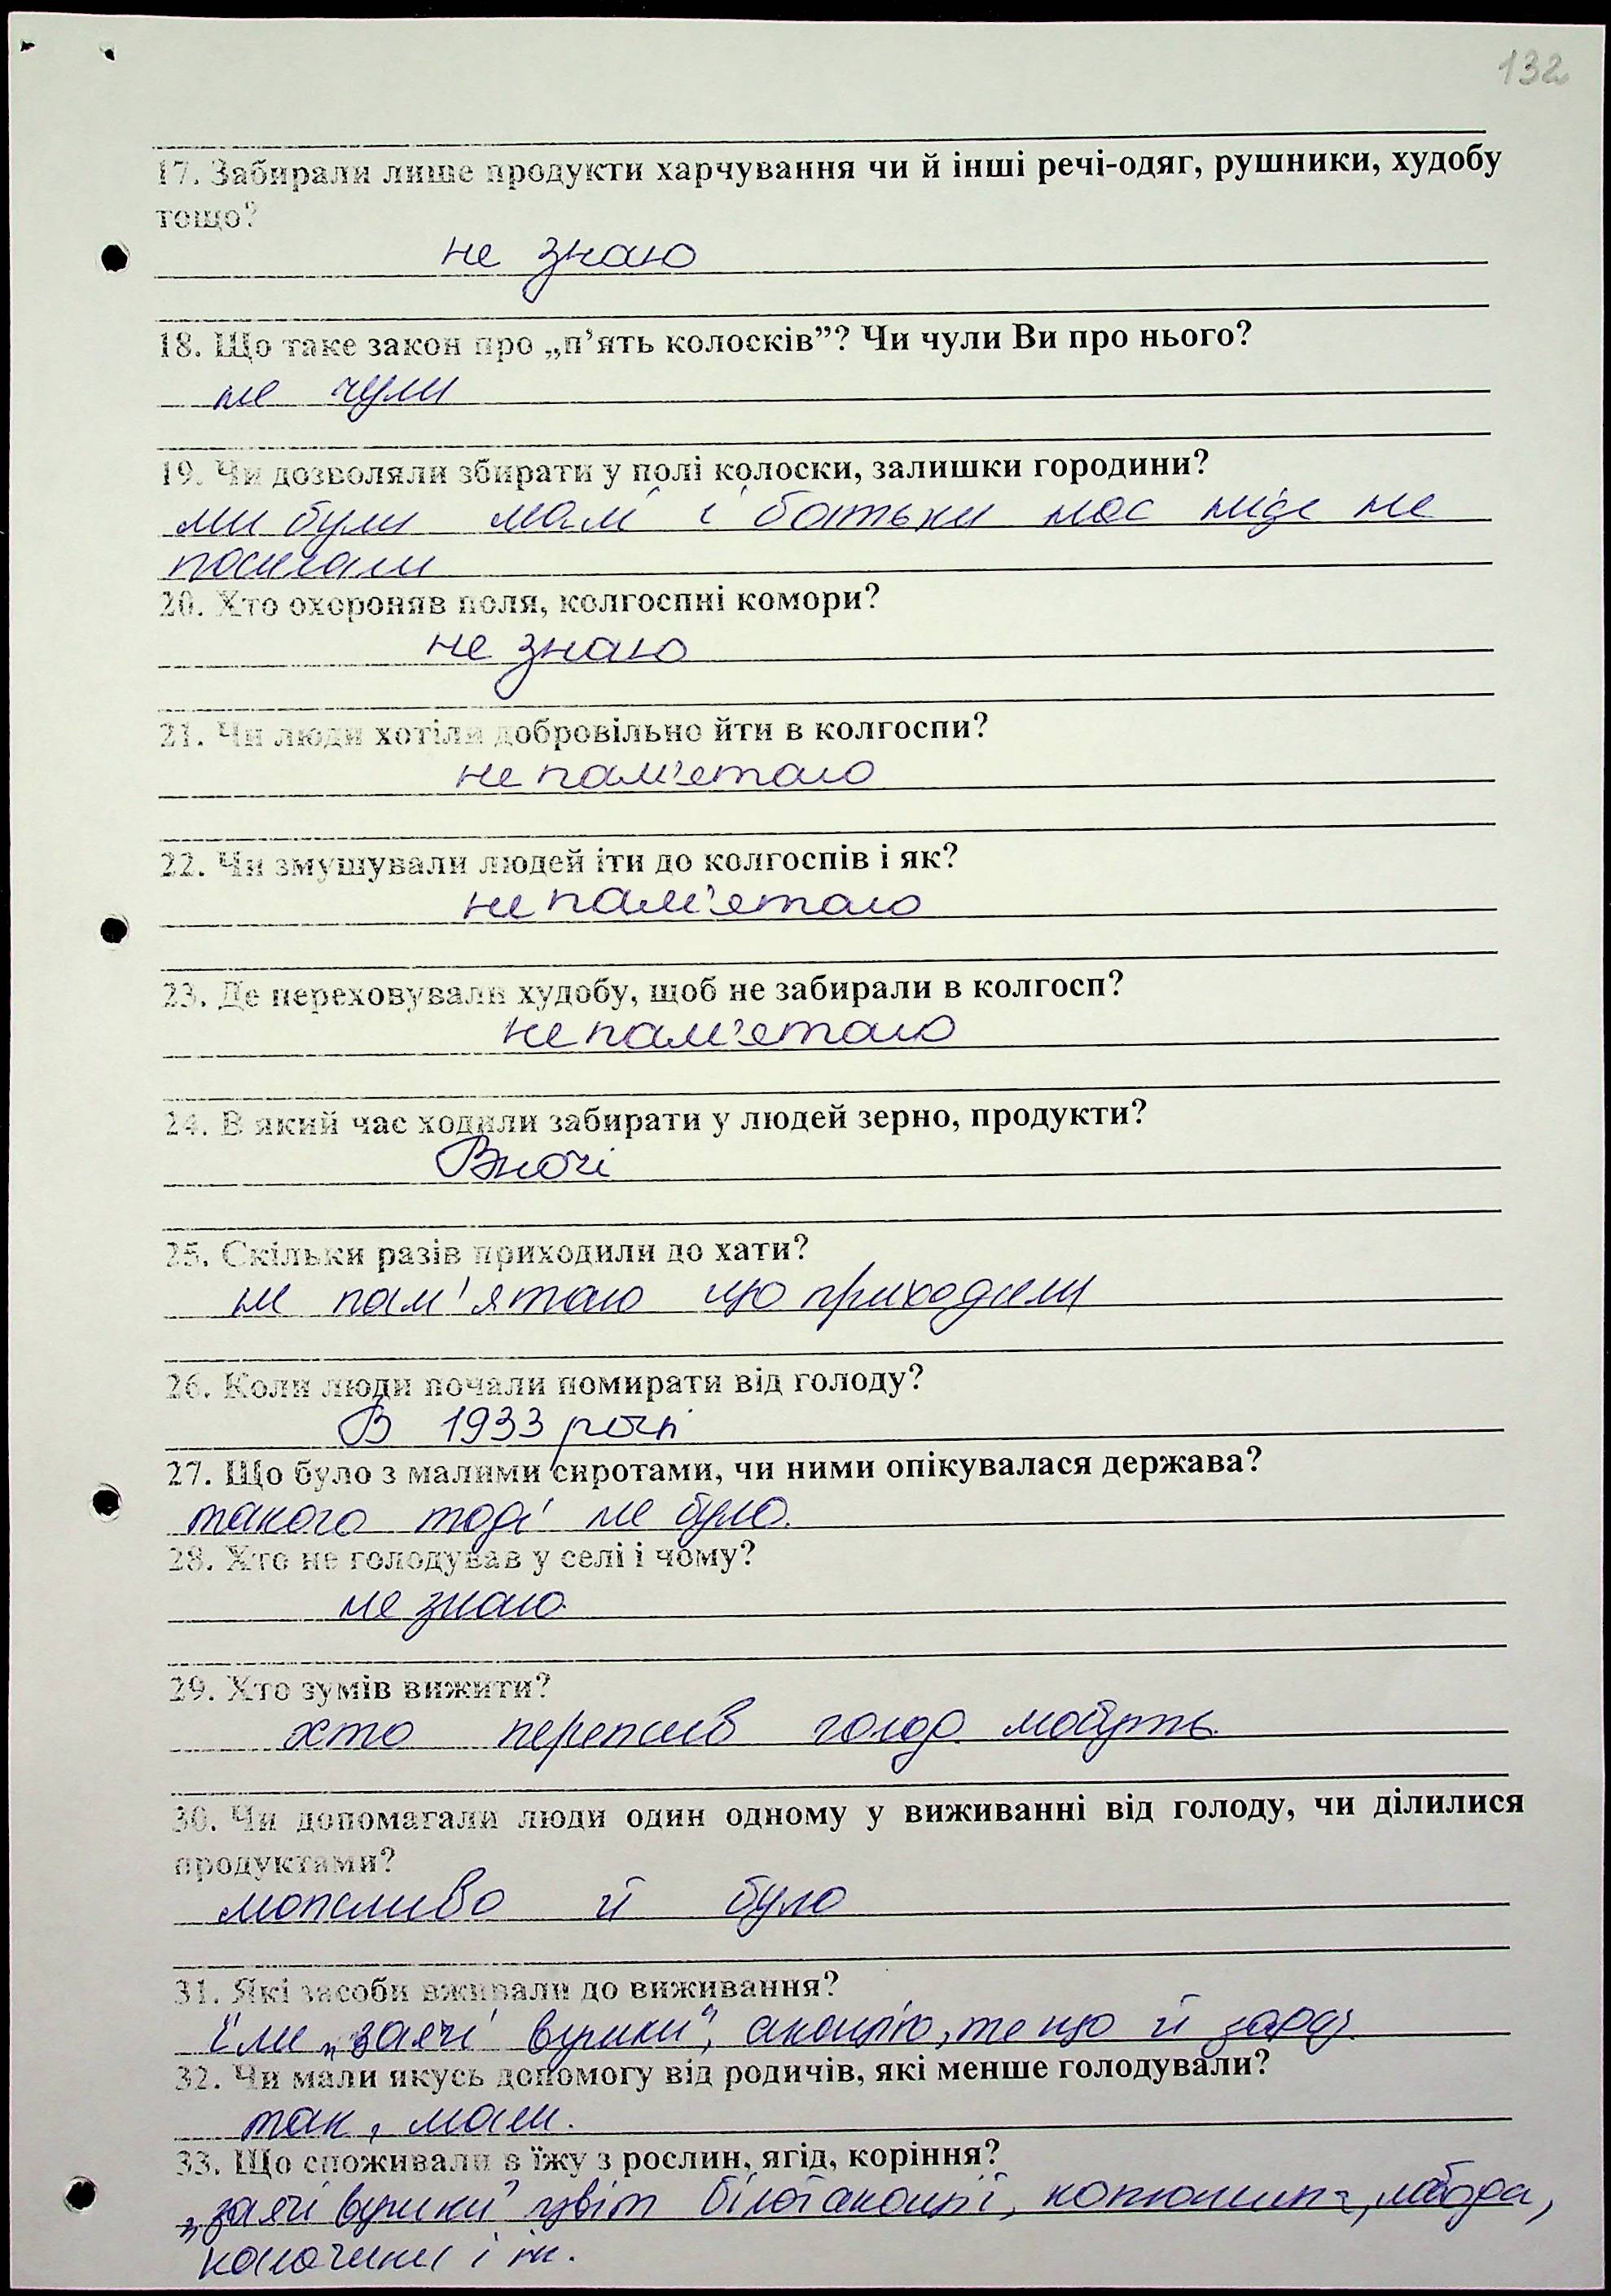 132
17. Забирали лише продукти харчування чи й інші речі-одяг, рушники, худобу
тощо?
не знаю
18. Що таке закон про „п’ять колосків”? Чи чули Ви про нього?
не чули
19. Чи дозволяли збирати у полі колоски, залишки городини?
ми були малі і батьки нас ніде не
посилали
20. Хто охороняв поля, колгоспні комори?
не знаю
21. Чи люди хотіли добровільно йти в колгоспи?
не пам'етаю
22. Чи змушували людей іти до колгоспів і як?
не пам'етаю
23. Де переховували худобу, щоб не забирали в колгосп?
не пам'етаю
24. В який час ходили забирати у людей зерно, продукти?
Вночі
25. Скільки разів приходили до хати?
не пам'ятаю що приходили
26. Коли люди почали помирати від голоду?
В 1933 році
27. Що було з малими сиротами, чи ними опікувалася держава?
такого тоді не було.
28. Хто не голодував у селі і чому?
не знаю.
29. Хто зумів вижити?
хто пережив голод мабуть.
30. Чи допомагали люди один одному у виживанні від голоду, чи ділилися
продуктами?
можливо й було
31. Які засоби вживали до виживання?
їли „заячі вушка", акацію, те що й зараз.
32. Чи мали якусь допомогу від родичів, які менше голодували?
так, мали.
33. Що споживали в їжу з рослин, ягід, коріння?
„заячі вушка" цвіт білої акації, лобода,
калачики і ін.